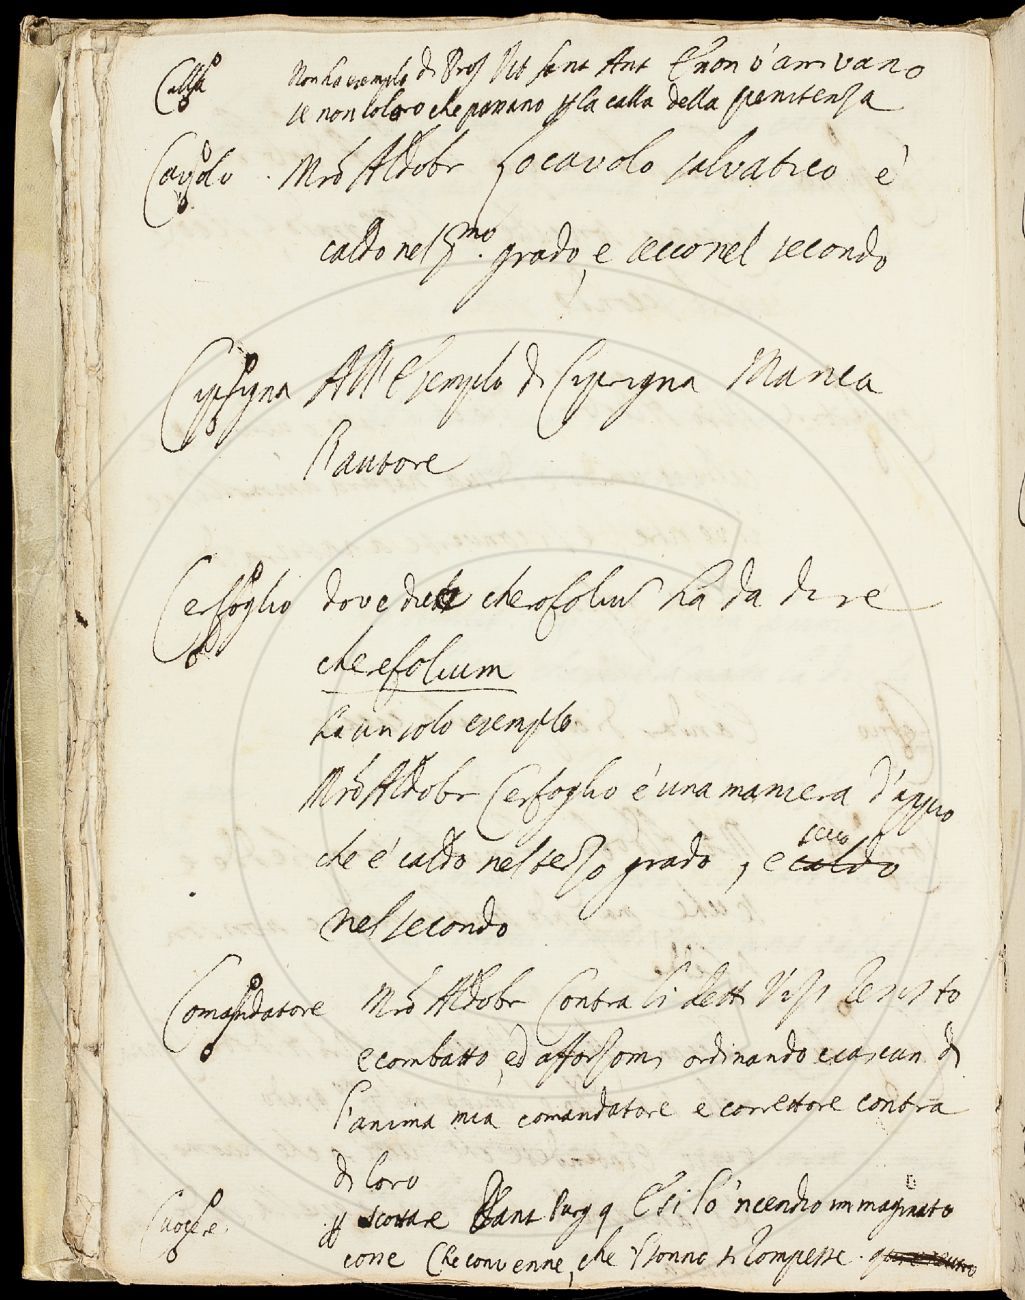 Calla Non ha esempio di Pros Vit sant Ant E non v'arrivano
se non coloro che passano p la calla della penitenza
Cavolo Mrõ Aldobr Lo cavolo salvatico è
caldo nel pmo. grado, e secco nel secondo
Cipigna All'Esempio di Cipigna Manca
l'autore
Cerfoglio dove dice cherofoliu ha da dire
cherefolium
ha un solo esempio
Mrõ Aldobr Cerfoglio è una maniera d'appio
che è caldo nel terzo grado, e caldo secco
nel secondo
Comandatore Mrõ Aldobr Contra li detti Vizi resisto
e combatto, ed afforzomi ordinando ciascun di
l'anima mia comandatore e correttore contra
di loro
Cuocere. p scottare Dant Purg 9 E sì lo 'ncendio immaginato
cosse Che convenne, che 'l sonno si rompesse.